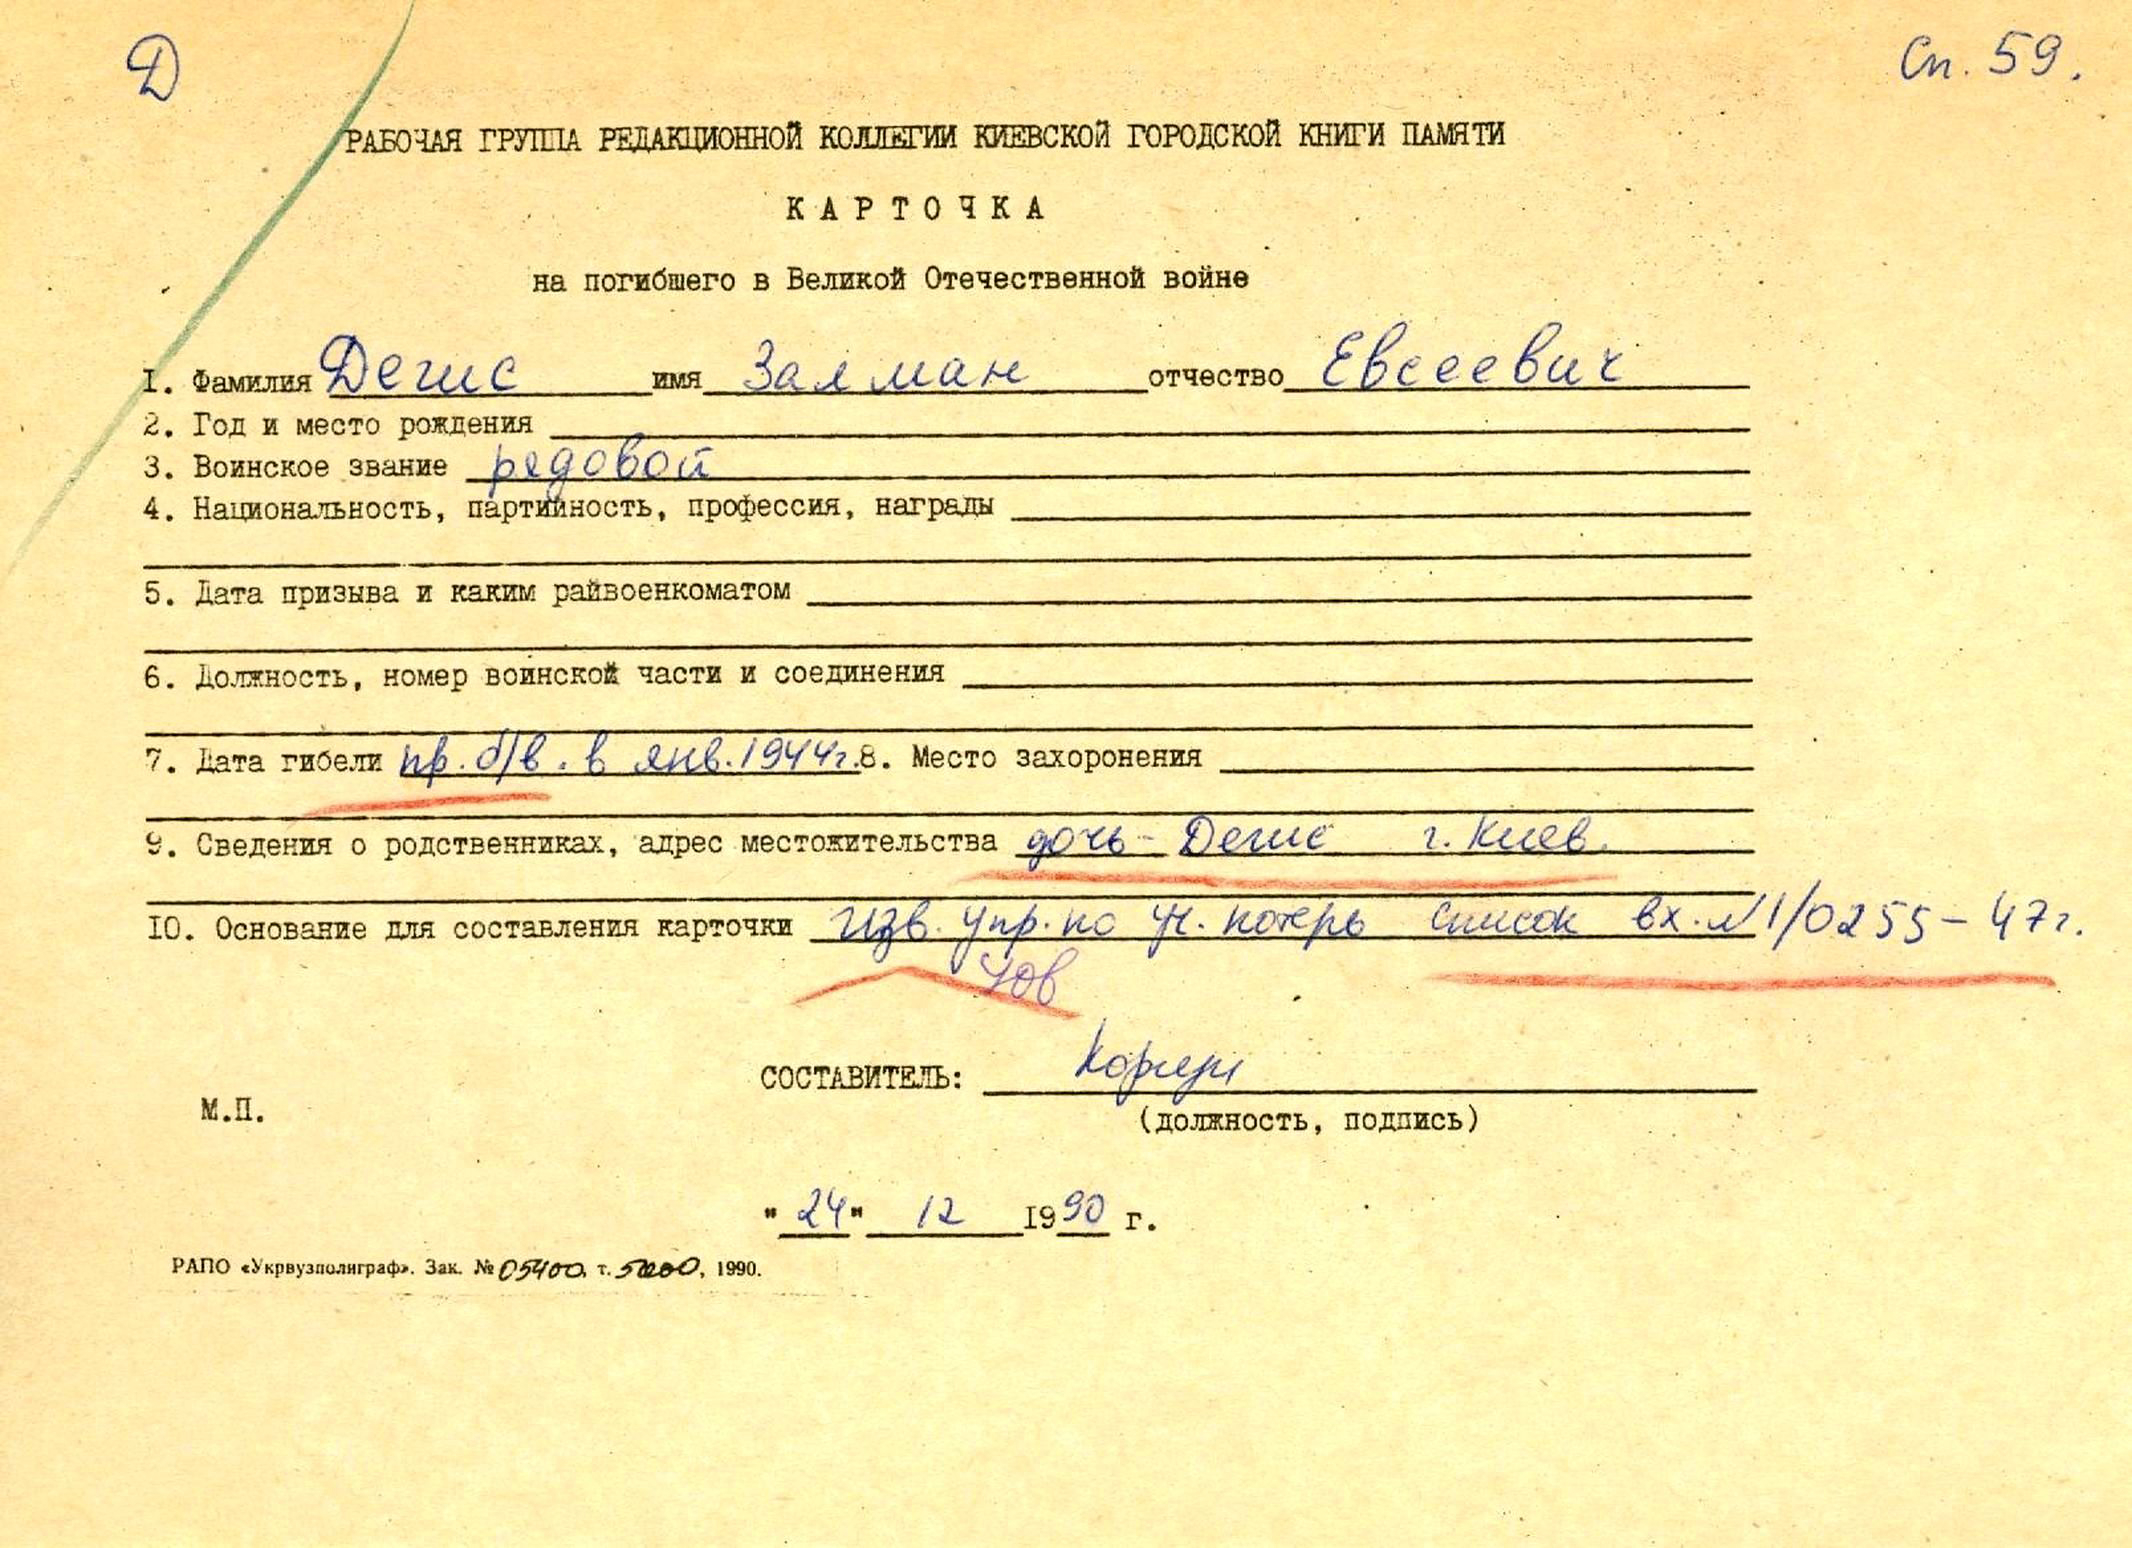 Д
Сп. 59.
РАБОЧАЯ ГРУППА РЕДАКЦИОННОЙ КОЛЛЕГИИ КИЕВСКОЙ ГОРОДСКОЙ КНИГИ ПАМЯТИ
КАРТОЧКА
на погибшего в Великой Отечественной войне
1. Фамилия Дегис имя Залман отчество Евсеевич
2. Год и место рождения
3. Воинское звание рядовой
4. Национальность, партийность, профессия, награды
5. Дата призыва и каким райвоенкоматом
6. Должность, номер воинской части и соединения
7. Дата гибели пр. б/в. в янв. 1944г. 8. Место захоронения
9. Сведения о родственниках, адрес местожительства дочь - Дегис г. Киев.
10. Основание для составления карточки Изв. Упр. по уч. потерь список вх. №1/0255-47г.
СОСТАВИТЕЛЬ:
М.П.
(должность, подпись)
"24" 12 1990 г.
РАПО «Укрвузполиграф». Зак. № 05400, т. 5000, 1990.